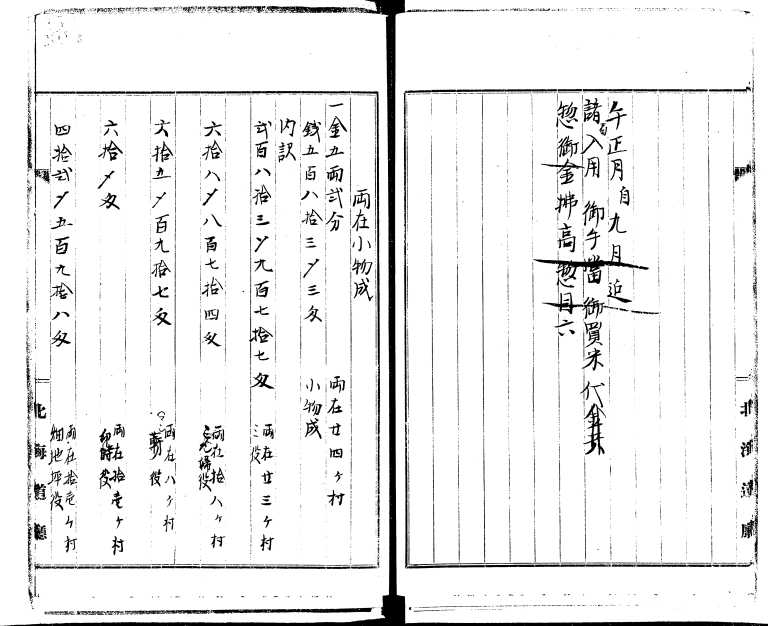 午正月自九月迄
諸入用御手當御買米代金共
惣御金拂高惣目六
北海道廳
両在小物成
一金五両弐分 両在廿四ヶ村
銭五百八拾三〆三匁 小物成
内訳
弐百八拾三〆九百七拾七匁 両在廿三ヶ村
三役
六拾八〆八百七拾四匁 両在拾八ヶ村
六拾五〆百九拾七匁 両在八ヶ村
六拾〆匁 両在拾壱ヶ村
四拾弐〆五百九拾八匁 両在拾壱ヶ村
畑地坪役
北海道廳